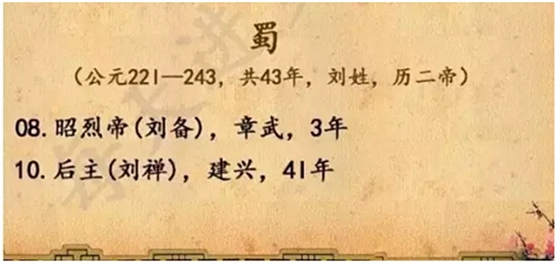 蜀
（公元221—243，共43年，刘姓，历二帝）
08.昭烈帝(刘备)，章武，3年
10.后主(刘禅)，建兴，41年